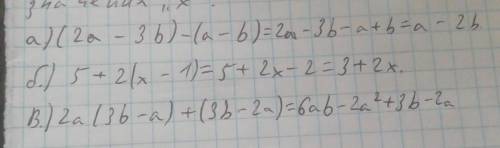 значениях "х".
а.) (2a - 3b) - (a - b) = 2a - 3b - a + b = a - 2b
б.) 5 + 2(x - 1) = 5 + 2x - 2 = 3 + 2x.
В.) 2a (3b - a) + (3b - 2a) = 6ab - 2a² + 3b - 2a